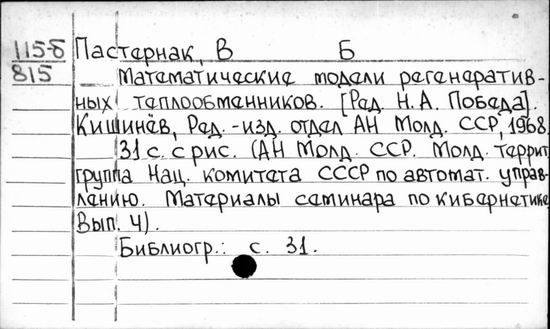 115-б Пастернак, В Б
815 Математические модели регенератив-
ных теплообменников. [Ред. Н.А. Победа].
Кишинёв, Ред.-изд. отдел АН Молд. ССР, 1968
31 с. с рис. (АН Молд. ССР. Молд. террит.
группа Нац. комитета СССР по автомат. управ-
лению. Материалы семинара по кибернетике
Вып. 4).
Библиогр.: с. 31.